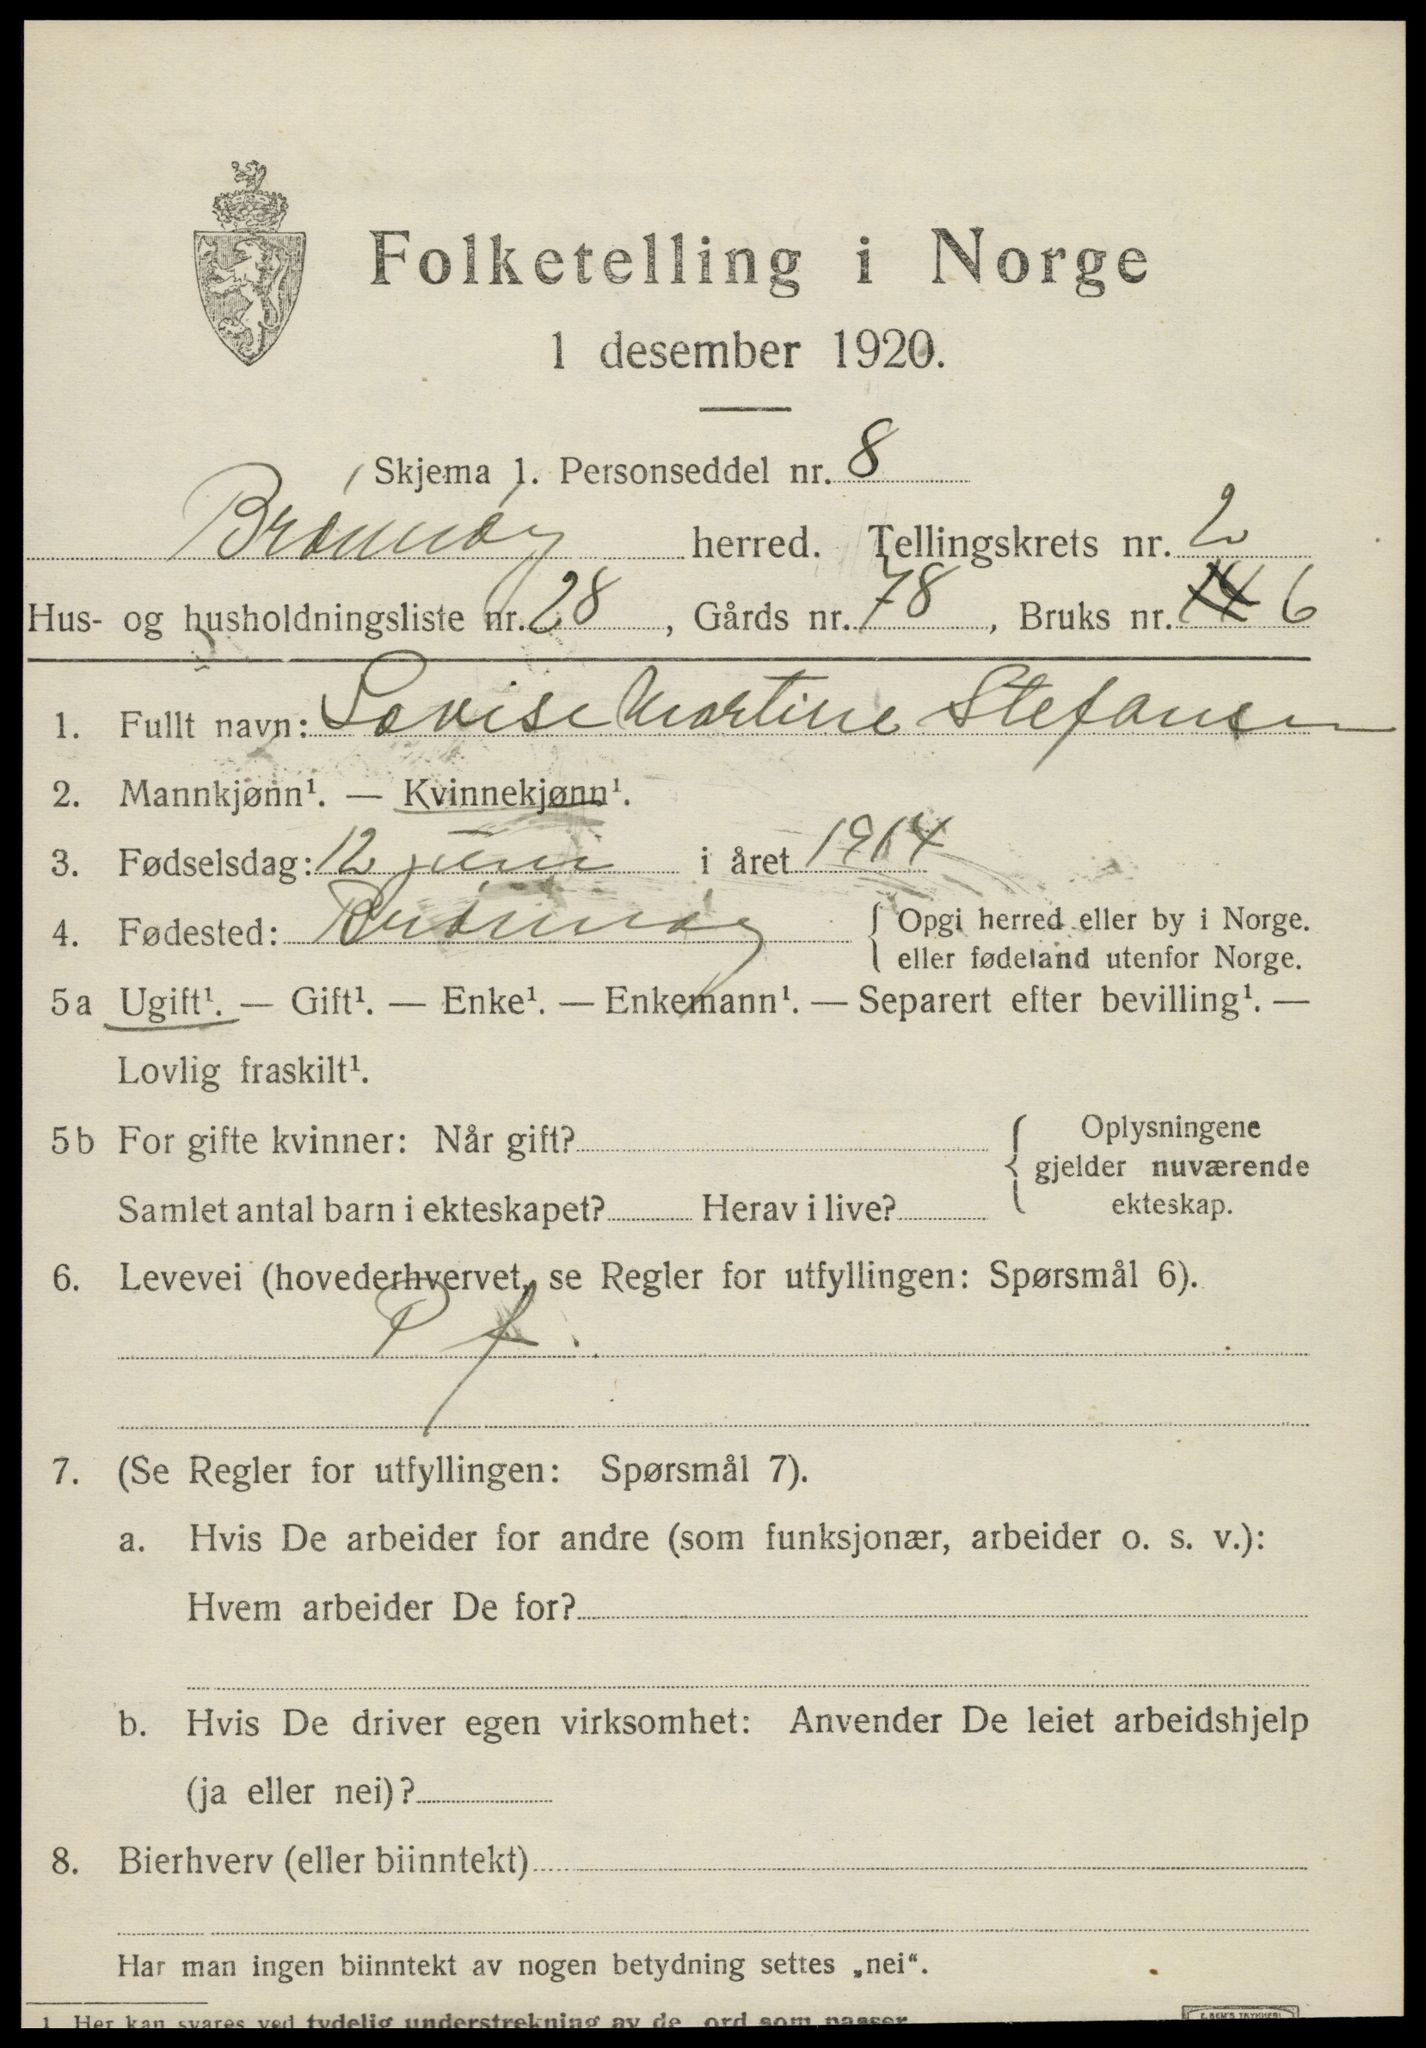 Folketelling i Norge
1 desember 1920.
Skjema 1. Personseddel nr. 8
Brønnøy herred. Tellingskrets nr. 2
Hus- og husholdningsliste nr. 28, Gårds nr. 78, Bruks nr. 6
1. Fullt navn: Lovise Martine Stefansen
2. Mannkjønn¹. — Kvinnekjønn¹.
3. Fødselsdag: 12 juni i året 1914
4. Fødested: Brønnøy { Opgi herred eller by i Norge.
eller fødeland utenfor Norge.
5a Ugift¹. — Gift¹. — Enke¹. — Enkemann¹. — Separert efter bevilling¹. —
Lovlig fraskilt¹.
5b For gifte kvinner: Når gift? { Oplysningene
gjelder nuværende
Samlet antal barn i ekteskapet? Herav i live? ekteskap.
6. Levevei (hovederhvervet, se Regler for utfyllingen: Spørsmål 6).
P f.
7. (Se Regler for utfyllingen: Spørsmål 7).
a. Hvis De arbeider for andre (som funksjonær, arbeider o. s. v.):
Hvem arbeider De for?
b. Hvis De driver egen virksomhet: Anvender De leiet arbeidshjelp
(ja eller nei)?
8. Bierhverv (eller biinntekt)
Har man ingen biinntekt av nogen betydning settes „nei“.
1. Her kan svares ved tydelig understrekning av de ord som passer.